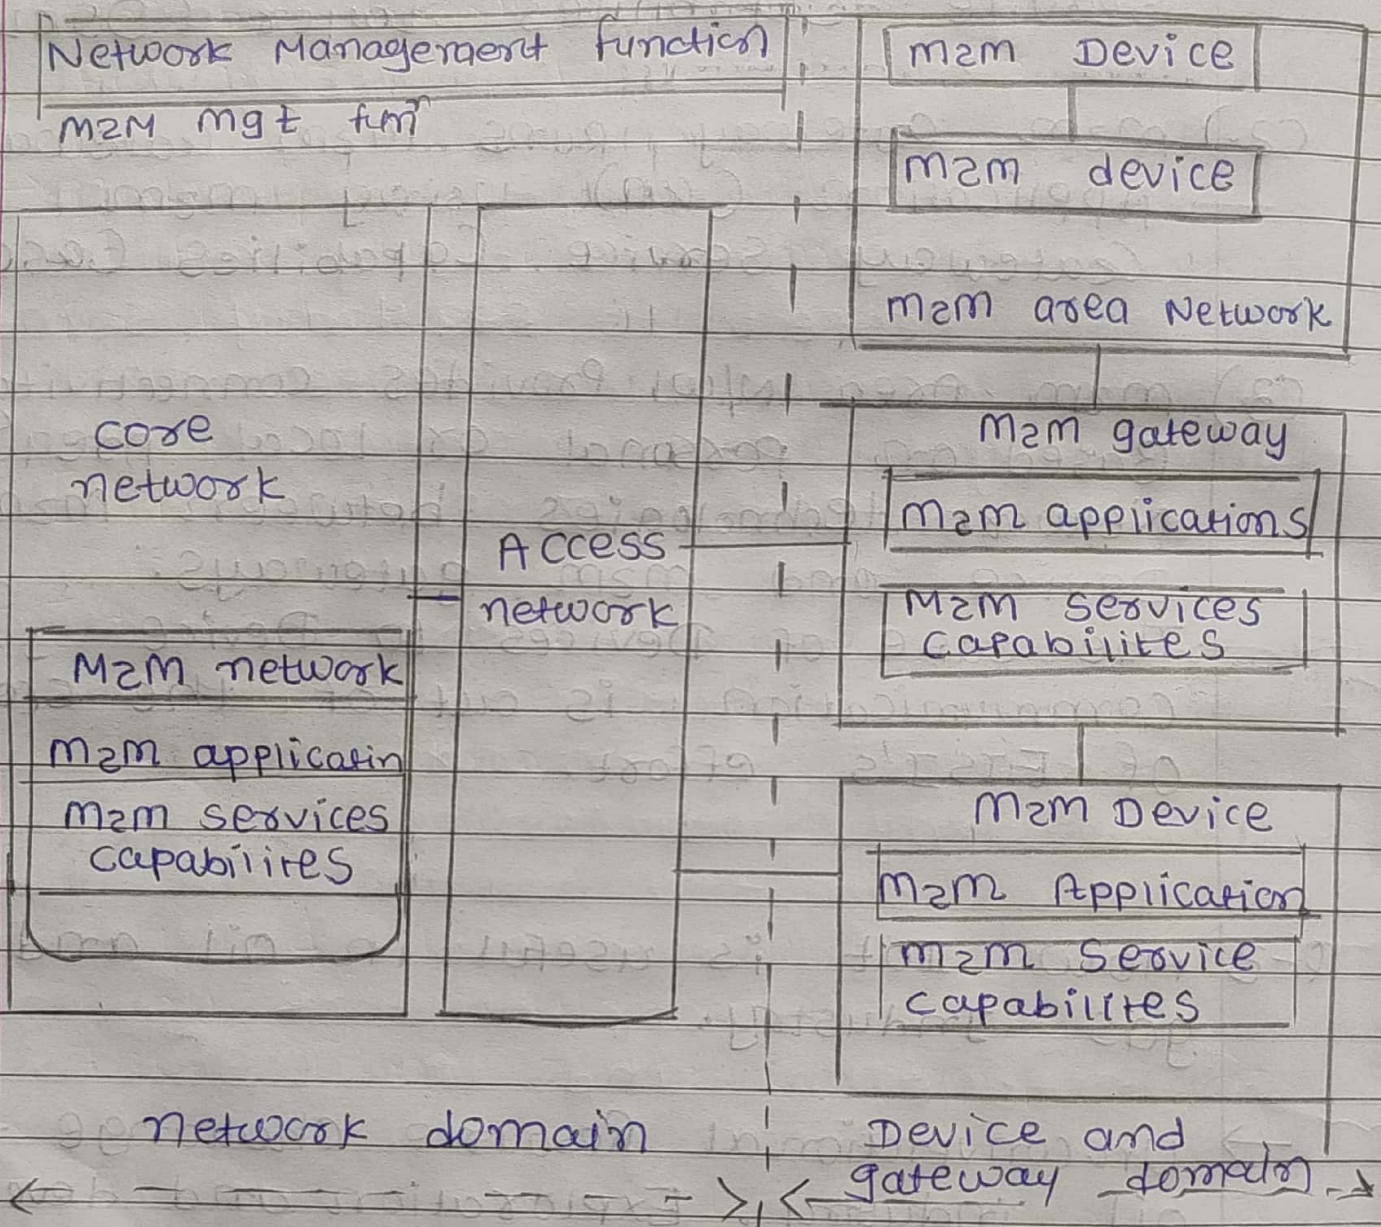 Network Management function
M2M mgt funⁿ
core
network
M2M network
m2m applicatin
m2m services
capabilites
Access
network
m2m Device
m2m device
m2m area Network
m2m gateway
m2m applications
M2M services
capabilites
M2M Device
m2m Application
m2m Service
capabilites
network domain
Device and
gateway domain